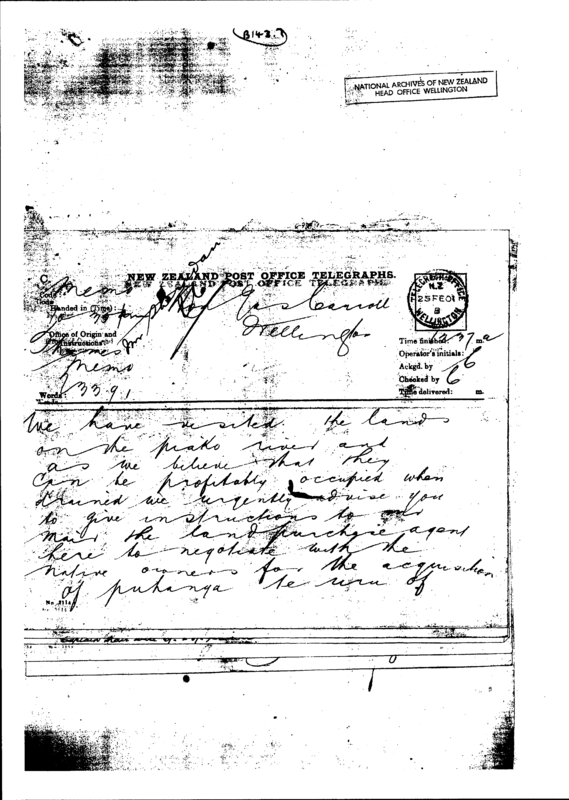 B143.
NATIONAL ARCHIVES OF NEW ZEALAND
HEAD OFFICE WELLINGTON
NEW ZEALAND POST OFFICE TELEGRAPHS.
NEW ZEALAND POST OFFICE TELEGRAPHS
C.
Memo
Code
Handed in (Time):
Hon Jas Carroll
Wellington
TELEGRAPH OFFICE
N.Z
25 FE 01
WELLINGTON
Office of Origin and
Instructions:
Thames
Memo
Words:
Time finished: 37 m
Operator's initials:
Ackgd. by
Checked by
Time delivered: m.
We have visited the lands
on the piako river and
as we believe that they
can be profitably occupied when
drained we urgently advise you
to give instructions to mr
mair the land purchase agent
here to negotiate with the
native owners for the acquisition
of puhanga te uru of